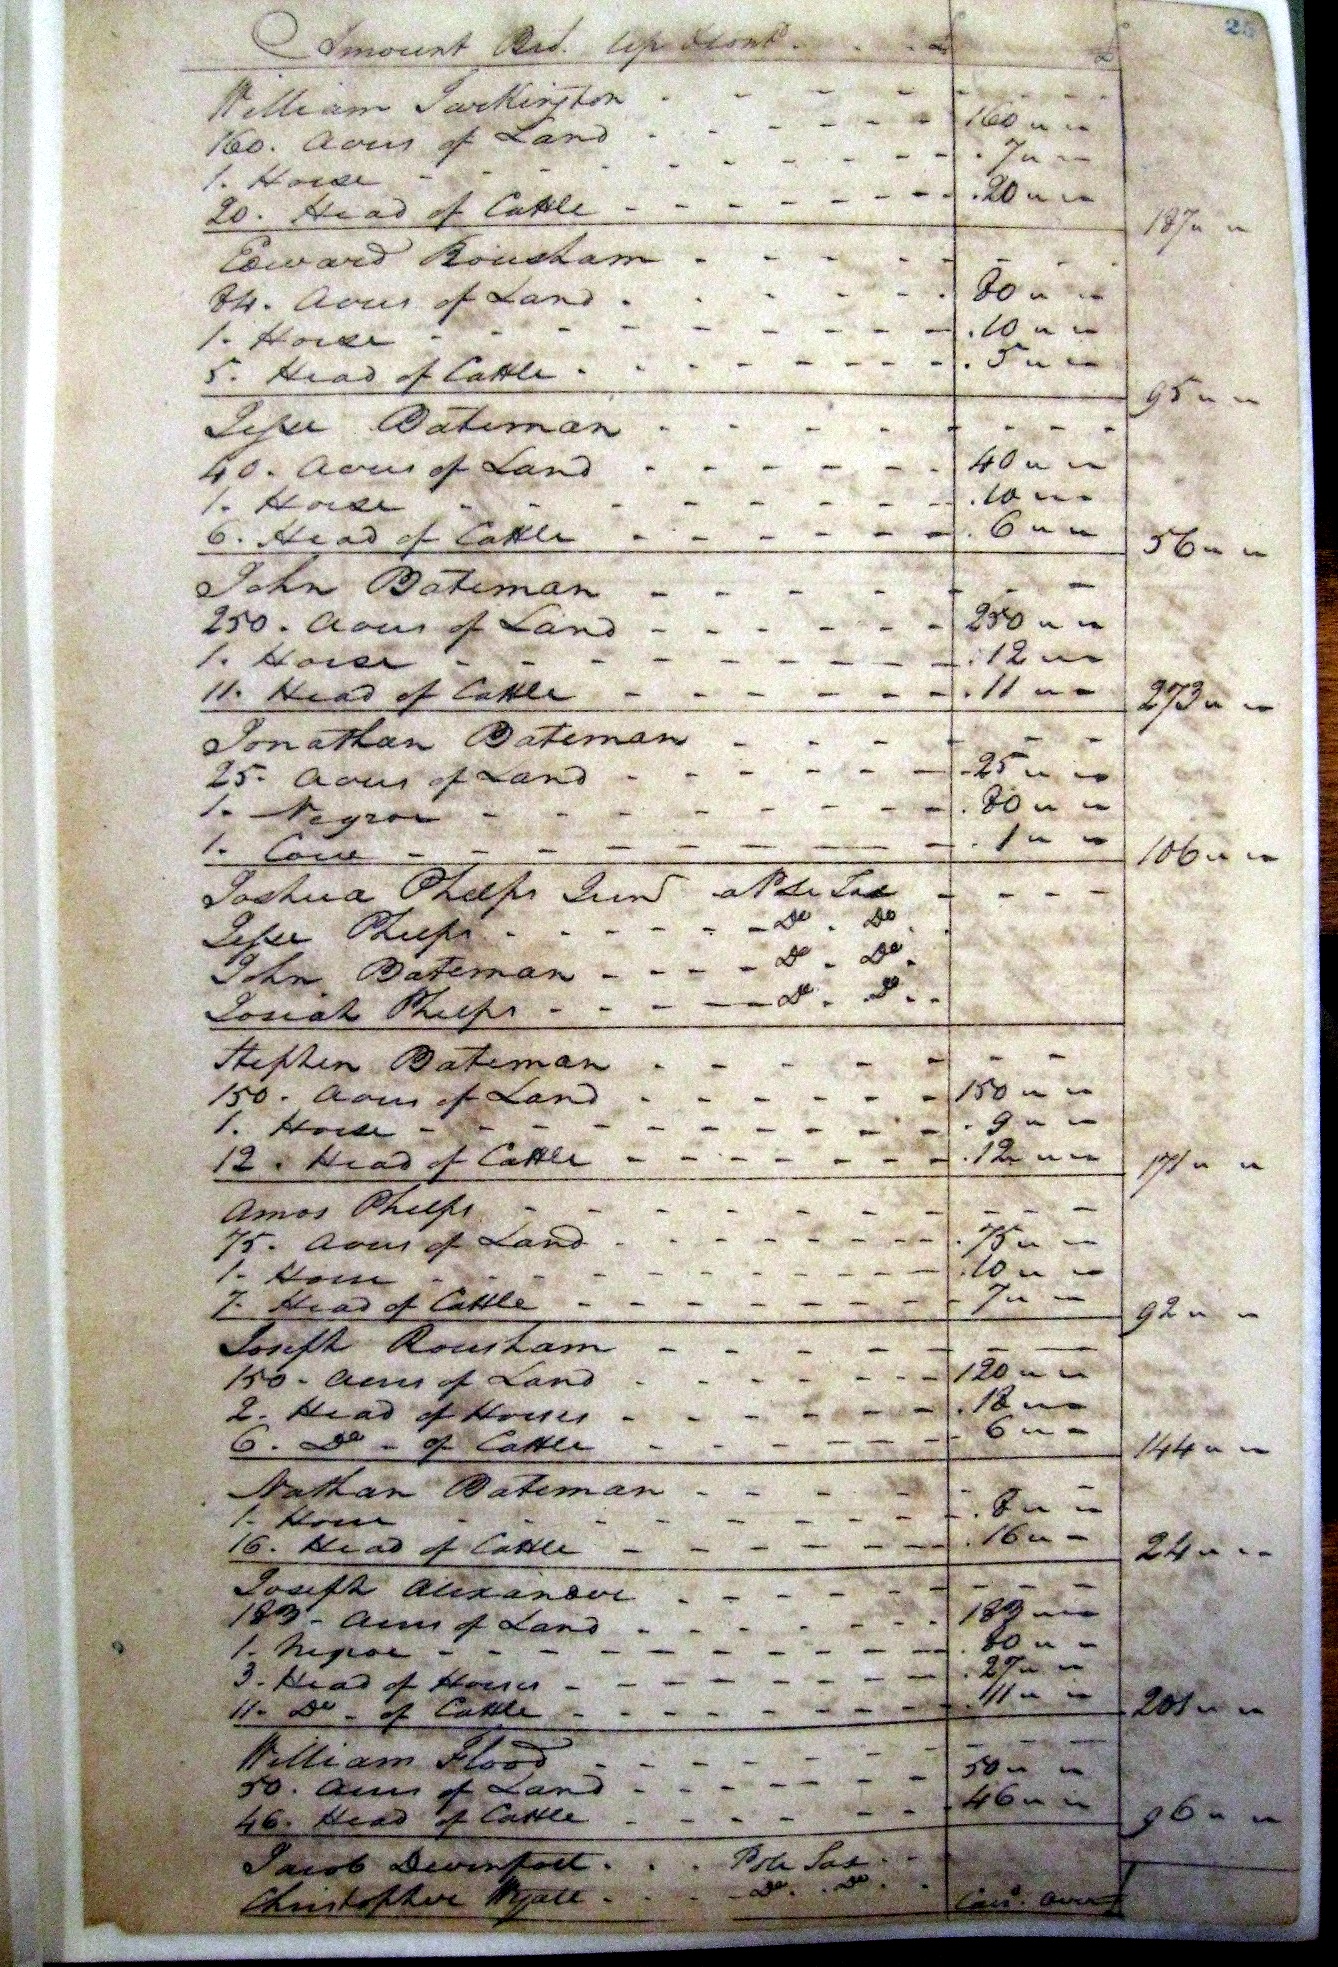 25
Amount Brd. Up Front. £ £
William Tarkington
160. Acres of Land 160 " "
1. Horse 7 " "
20. Head of Cattle 20 " "
187 " "
Edward Rousham
84. Acres of Land 80 " "
1. Horse 10 " "
5. Head of Cattle 5 " "
95 " "
Jesse Bateman
40. Acres of Land 40 " "
1. Horse 10 " "
6. Head of Cattle 6 " "
56 " "
John Bateman
250. Acres of Land 250 " "
1. Horse 12 " "
11. Head of Cattle 11 " "
273 " "
Jonathan Bateman
25. Acres of Land 25 " "
1. Negroe 80 " "
1. Cow 1 " "
106 " "
Joshua Phelps Junr a Pole Tax
Jesse Phelps Do. Do
John Bateman Do. Do.
Josiah Phelps Do. Do.
Stephen Bateman
150. Acres of Land 150 " "
1. Horse 9 " "
12. Head of Cattle 12 " "
171 " "
Amos Phelps
75. Acres of Land 75 " "
1. Horse 10 " "
7. Head of Cattle 7 " "
92 " "
Joseph Rousham
150. Acres of Land 120 " "
2. Head of Horses 18 " "
6. Do of Cattle 6 " "
144 " "
Nathan Bateman
1. Horse 8 " "
16. Head of Cattle 16 " "
24 " "
Joseph Alexander
183. Acres of Land 183 " "
1. Negroe 80 " "
3. Head of Horses 27 " "
11. Do of Cattle 11 " "
" "
William Flood
50. Acres of Land 50 " "
46. Head of Cattle 46 " "
96 " "
Jacob Devenport. Pole Tax
Christopher Wyatt. Do. Do. Card. over